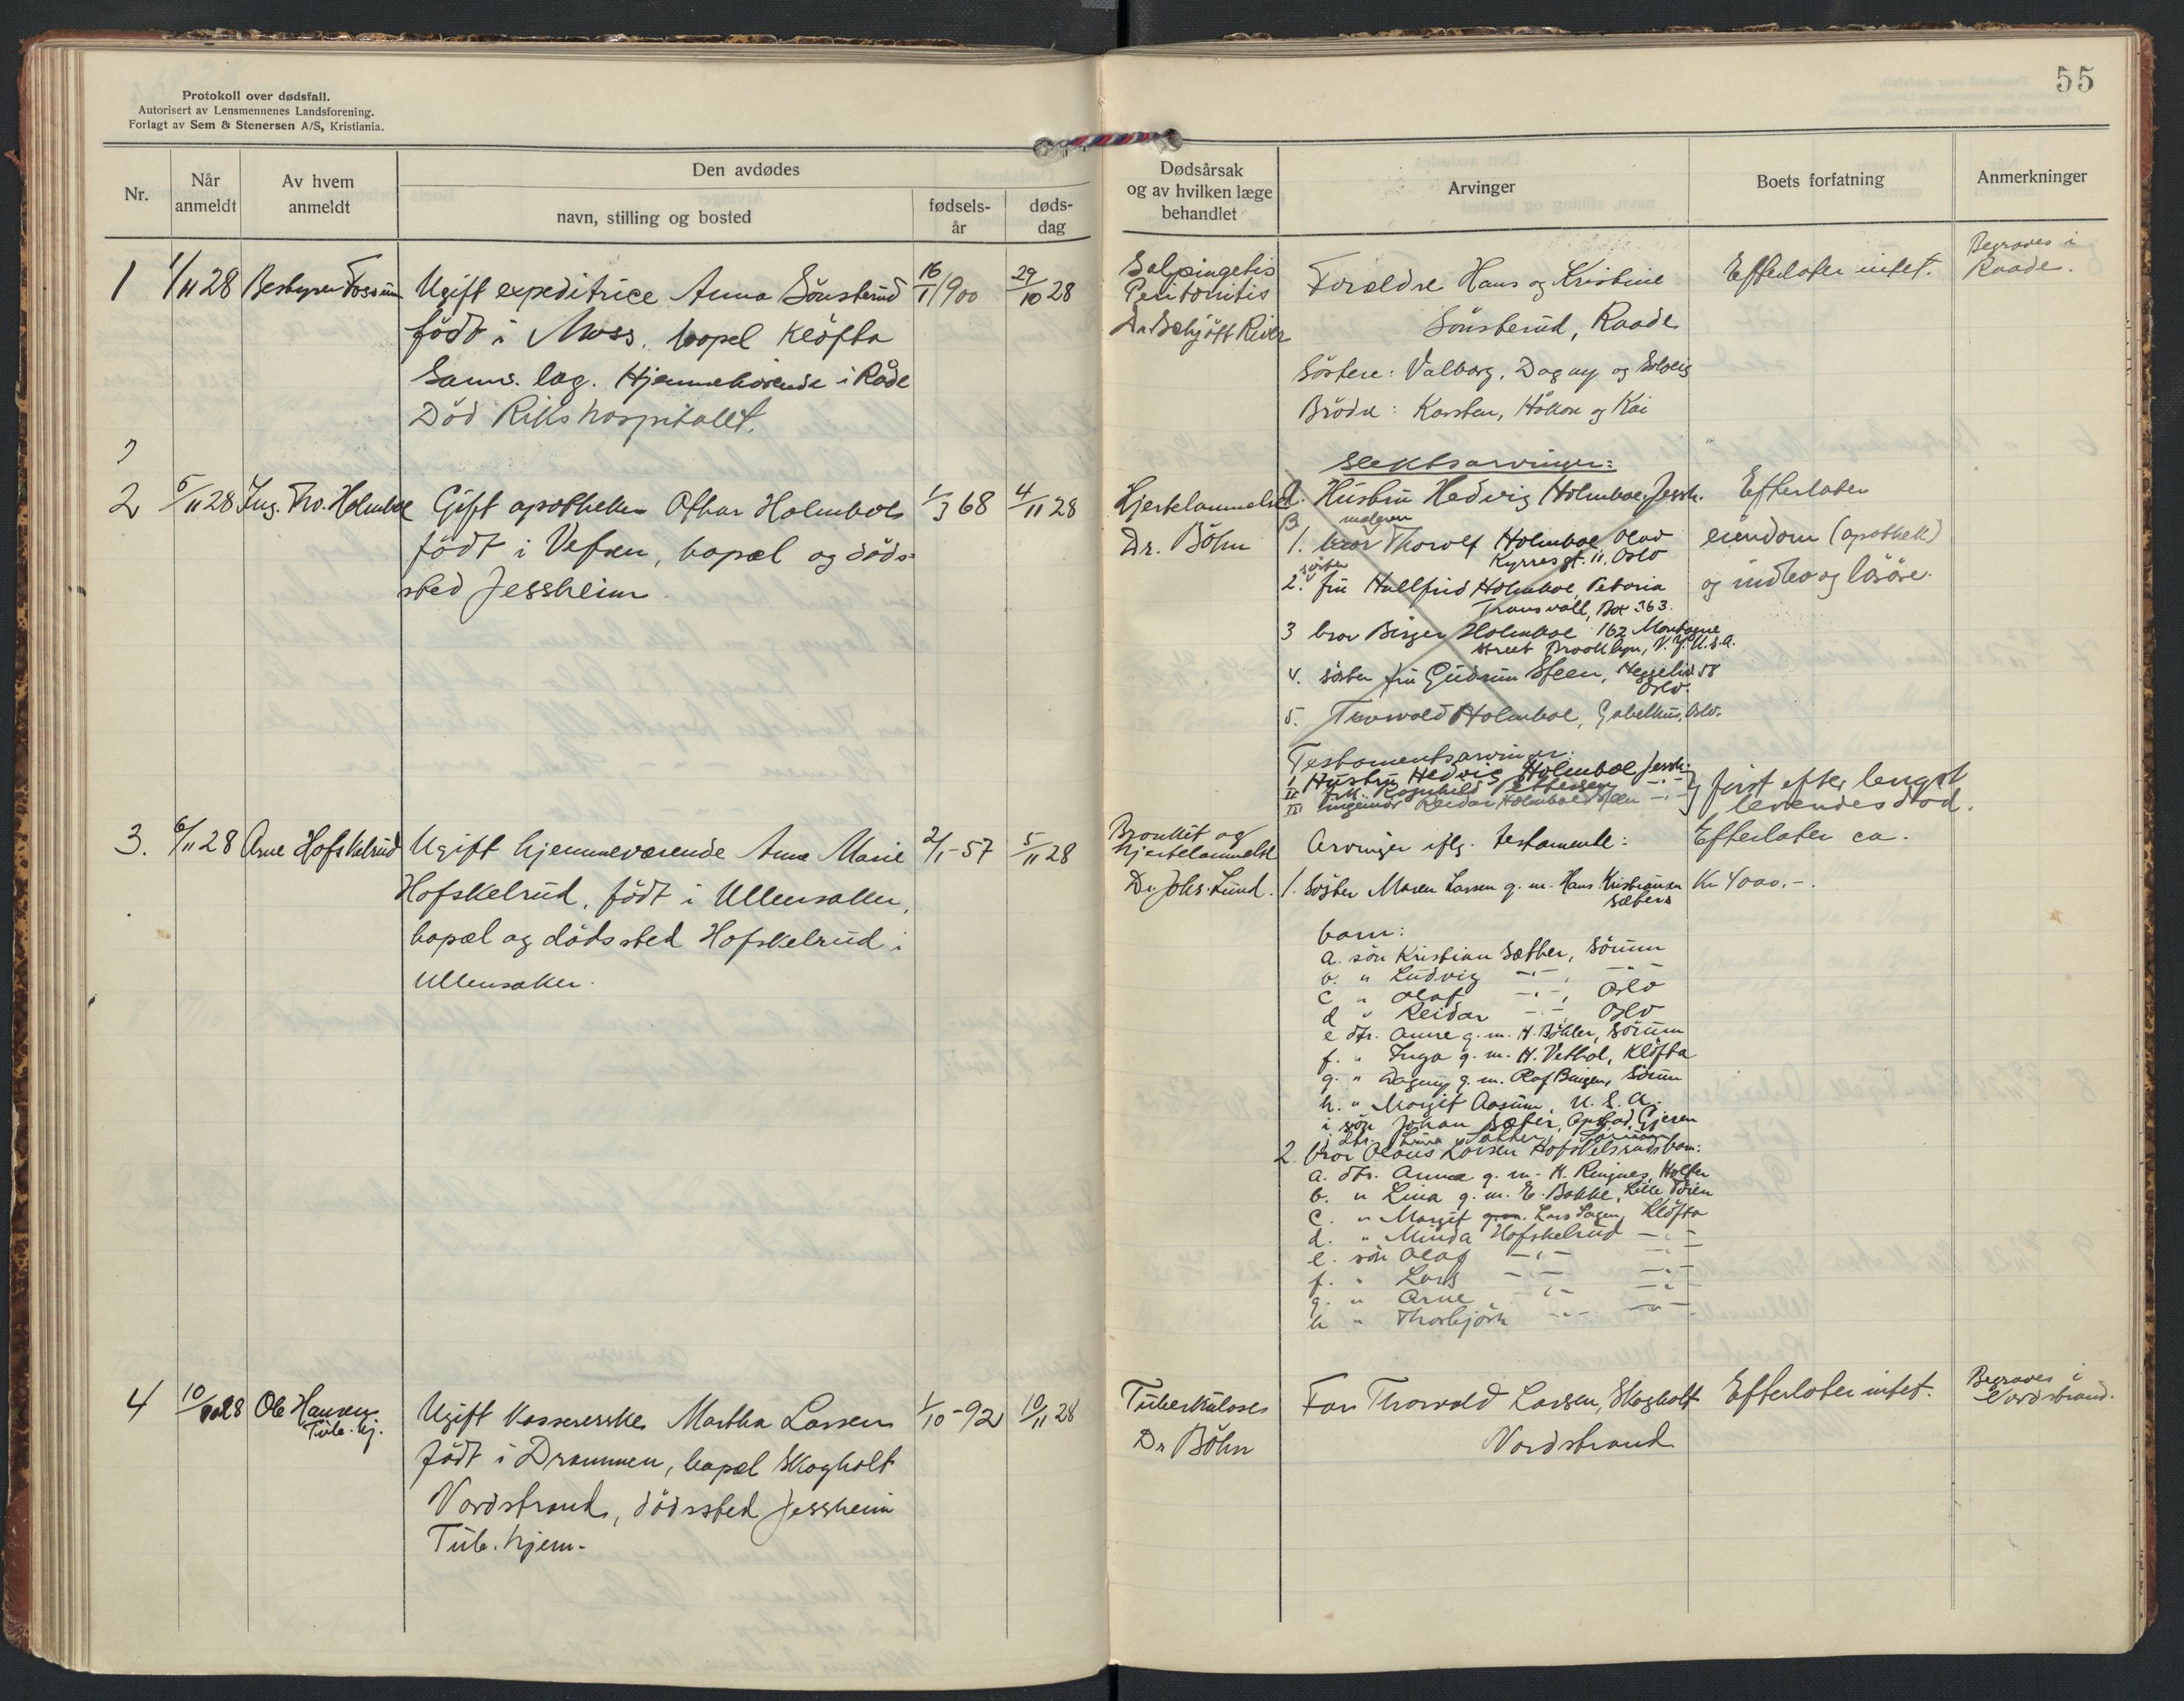 Protokoll over dødsfall.
Autorisert av Lensmennenes Landsforening.
Forlagt av Sem & Stenersen A/S, Kristiania.
55
Nr.
Når anmeldt
Av hvem anmeldt
Den avdødes
navn, stilling og bosted
fødsels-år
døds-dag
Dødsårsak og av hvilken læge behandlet
Arvinger
Boets forfatning
Anmerkninger
1 1/11 28 Bestyrer Fossum
Ugift expeditrice Anna Sønsterud 16/1 900 29/10 28
født i Moss, bopel Kløfta
Sams. lag. Hjemmehörende i Råde
Död Rikshospitalet.
Salpingetis
Peritonitis
Forældre Hans og Kristine
Sönsterud, Raade
Söstere: Valborg, Dagny og Solveig
Brödre: Karsten, Håkon og Kai
Efterlater intet.
Begraves i
Raade.
2 5/11 28 Ing. Thv. Holmboe
Gift apotheker Othar Holmboe 1/3 68 4/11 28
födt i Vefsen, bopæl og döds-
sted Jessheim
Hjertelammelse
Dr. Böhn
Slektsarvinger:
A. Hustru Hedvig Holmboe, Jessh.
B. maleren
1. bror Thorolf Holmboe Olav
Kyrres gt. 11, Oslo
söster
2. fru Hallfrid Holmboe, Petoria
Transvall, Box 363.
3 bror Birger Holmboe 162 Montague
street Brooklyn, N.Y. U.S.A.
4. söster fru Gudrun Steen, Heggeli 58
Oslo.
5. Thorvald Holmboe, Gabelhus, Oslo.
Testamentsarvinger:
I Hustru Hedvig Holmboe Jessh.
II Frk. Ragnhild Pettersen -"-
III Ingeniör Reidar Holmboe Steen -"-
Efterlater
eiendom (apothek)
og indbo og lösöre.
först efter lengst
levendes död.
3. 6/11 28 Arne Hofskelrud
Ugift hjemmeværende Anne Marie 2/1-57 5/11 28
Hofskelrud, födt i Ullensaker,
bopæl og dödssted Hofskelrud i
Ullensaker.
Bronkit og
hjertelammelse
Dr. Johs. Lund.
Arvinger iflg. testamente:
1. Söster Maren Larsen g.m. Hans Kristiansen
Sæters
barn:
a. sön Kristian Sæther, Sörum
b. " Ludvig -"-, -"-
c " Olaf -"-, Oslo
d " Reidar -"- Oslo
e dtr. Anne g.m. H. Böhler, Sörum
f. " Inga g.m. H. Vethol, Klöfta
g. " Dagny g.m. Olaf Bingen, Sörum
h. " Margit Aasum, U.S.A.
i sön Johan Sæter, Opstad, Gjesen
j dtr. Lina Sæther, Sörum
2. bror Olaus Larsen Hofskelsruds barn:
a. dtr. Anna g.m. K. Ringnes, Holter
b. " Lina g.m. E. Bakke, Lille Töien
c. " Margit g.m. Lars Hagen, Klöfta
d. " Minda Hofskelrud -"-
e. sön Olaf -"- -"-
f. " Lars -"- -"-
g. " Arne -"- -"-
h " Thorbjörn -"- -"-
Efterlater ca.
Kr 4000.-.
4 10/11 28 Ole Hansen
Tub. hj.
Ugift vaskerske Martha Larsen 1/10-92 10/11 28
födt i Drammen, bopæl Skogholt
Nordstrand, dödssted Jessheim
Tub. hjem.
Tuberkulose
Dr Böhn
Far Thorvald Larsen, Skogholt
Nordstrand
Efterlater intet.
Begraves i
Nordstrand.